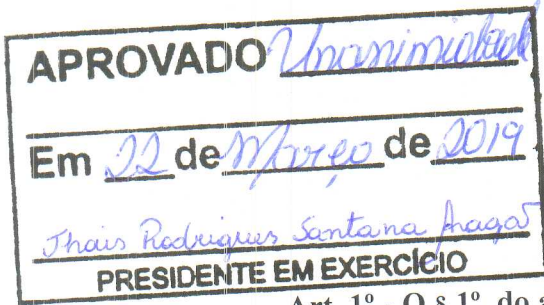 APROVADO Unanimidade
Em 22 de Março de 2019
Thais Rodrigues Santana Aragão
PRESIDENTE EM EXERCÍCIO
Art. 1º - O § 1º, do